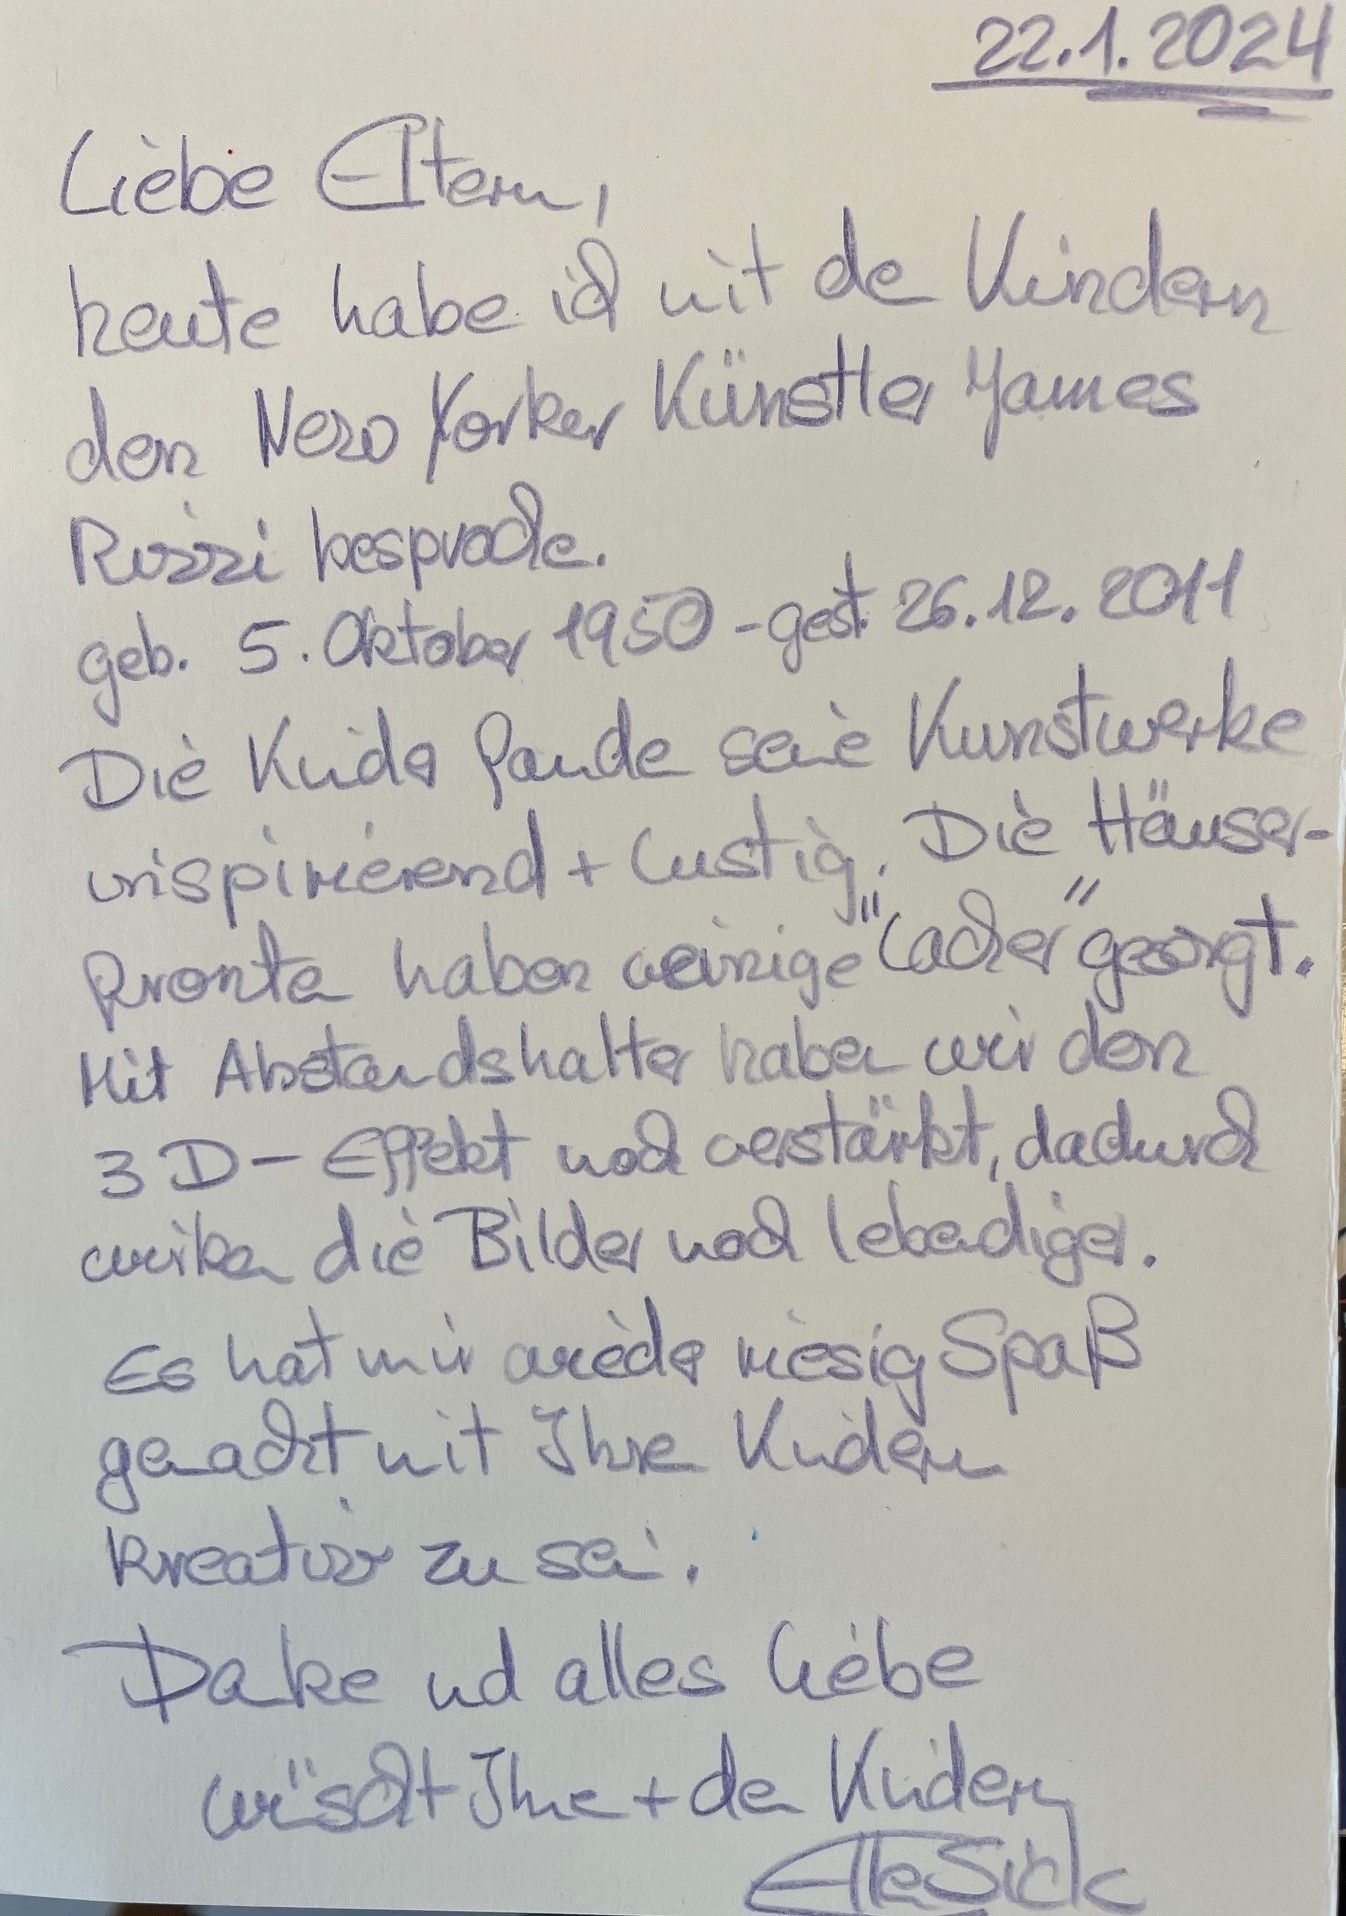 22.1.2024
Liebe Eltern,
heute habe ich mit den Kindern
den New Yorker Künstler James
Rizzi besprochen.
geb. 5. Oktober 1950 - gest. 26.12.2011
Die Kinder fanden seine Kunstwerke
inspirierend + lustig. Die Häuser-
fronten haben für einige "Lacher" gesorgt.
Mit Abstandshalter haben wir den
3D-Effekt noch verstärkt, dadurch
wirken die Bilder noch lebendiger.
Es hat mir wieder riesig Spaß
gemacht mit Ihren Kindern
kreativ zu sein.
Danke und alles Liebe
wünscht Ihnen + den Kindern